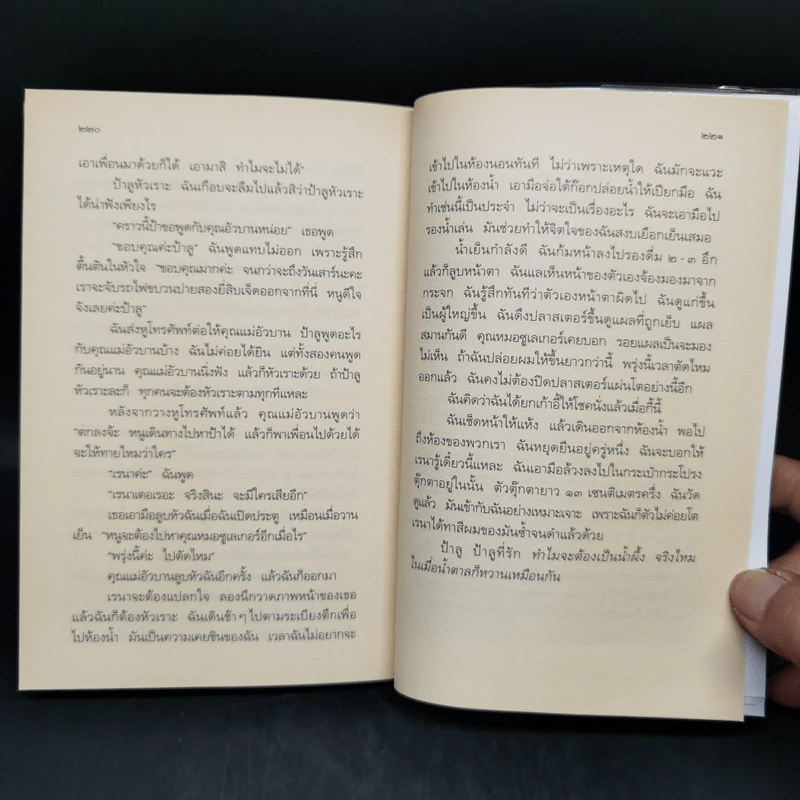 ๒๒๐
เอาเพื่อนมาด้วยก็ได้ เอามาสิ ทำไมจะไม่ได้"
ป้าลูหัวเราะ ฉันเกือบจะลืมไปแล้วสิว่าป้าลูหัวเราะ
ได้น่าฟังเพียงไร
"คราวนี้ป้าขอพูดกับคุณอัวบานหน่อย" เธอพูด
"ขอบคุณค่ะป้าลู" ฉันพูดแทบไม่ออก เพราะรู้สึก
ตื้นตันในหัวใจ "ขอบคุณมากค่ะ จนกว่าจะถึงวันเสาร์นะคะ
เราจะจับรถไฟขบวนบ่ายสองยี่สิบเจ็ดออกจากที่นี่ หนูดีใจ
จังเลยค่ะป้าลู"
ฉันส่งหูโทรศัพท์ต่อให้คุณแม่อัวบาน ป้าลูพูดอะไร
กับคุณแม่อัวบานบ้าง ฉันไม่ค่อยได้ยิน แต่ทั้งสองคนพูด
กันอยู่นาน คุณแม่อัวบานนิ่งฟัง แล้วก็หัวเราะด้วย ถ้าป้าลู
หัวเราะละก็ ทุกคนจะต้องหัวเราะตามทุกทีแหละ
หลังจากวางหูโทรศัพท์แล้ว คุณแม่อัวบานพูดว่า
"ตกลงจ้ะ หนูเดินทางไปหาป้าได้ แล้วก็พาเพื่อนไปด้วยได้
จะให้ทายไหมว่าใคร"
"เรนาค่ะ" ฉันพูด
"เรนาเตอเรอะ จริงสินะ จะมีใครเสียอีก"
เธอเอามือลูบหัวฉันเมื่อฉันเปิดประตู เหมือนเมื่อวาน
เย็น "หนูจะต้องไปหาคุณหมอซูเลเกอร์อีกเมื่อไร"
"พรุ่งนี้ค่ะ ไปตัดไหม"
คุณแม่อัวบานลูบหัวฉันอีกครั้ง แล้วฉันก็ออกมา
เรนาจะต้องแปลกใจ ลองนึกวาดภาพหน้าของเธอ
แล้วฉันก็ต้องหัวเราะ ฉันเดินช้าๆ ไปตามระเบียงตึกเพื่อ
ไปห้องน้ำ มันเป็นความเคยชินของฉัน เวลาฉันไม่อยากจะ
๒๒๑
เข้าไปในห้องนอนทันที ไม่ว่าเพราะเหตุใด ฉันมักจะแวะ
เข้าไปในห้องน้ำ เอามือจ่อใต้ก๊อกปล่อยน้ำให้เปียกมือ ฉัน
ทำเช่นนี้เป็นประจำ ไม่ว่าจะเป็นเรื่องอะไร ฉันจะเอามือไป
รองน้ำเล่น มันช่วยทำให้จิตใจของฉันสงบเยือกเย็นเสมอ
น้ำเย็นกำลังดี ฉันก้มหน้าลงไปรองดื่ม ๒ - ๓ อึก
แล้วก็ลูบหน้าตา ฉันแลเห็นหน้าของตัวเองจ้องมองมาจาก
กระจก ฉันรู้สึกทันทีว่าตัวเองหน้าตาผิดไป ฉันดูแก่ขึ้น
เป็นผู้ใหญ่ขึ้น ฉันดึงปลาสเตอร์ขึ้นดูแผลที่ถูกเย็บ แผล
สมานกันดี คุณหมอซูเลเกอร์เคยบอก รอยแผลเป็นจะมอง
ไม่เห็น ถ้าฉันปล่อยผมให้ขึ้นยาวกว่านี้ พรุ่งนี้เวลาตัดไหม
ออกแล้ว ฉันคงไม่ต้องปิดปลาสเตอร์แผ่นโตอย่างนี้อีก
ฉันคิดว่าฉันได้ยกเก้าอี้ให้โชคนั่งแล้วเมื่อกี้นี้
ฉันเช็ดหน้าให้แห้ง แล้วเดินออกจากห้องน้ำ พอไป
ถึงห้องของพวกเรา ฉันหยุดยืนอยู่ครู่หนึ่ง ฉันจะบอกให้
เรนารู้เดี๋ยวนี้แหละ ฉันเอามือล้วงลงไปในกระเป๋ากระโปรง
ตุ๊กตาอยู่ในนั้น ตัวตุ๊กตายาว ๑๓ เซนติเมตรครึ่ง ฉันวัด
ดูแล้ว มันเข้ากับฉันอย่างเหมาะเจาะ เพราะฉันก็ตัวไม่ค่อยโต
เรนาได้ทาสีผมของมันซ้ำจนดำแล้วด้วย
ป้าลู ป้าลูที่รัก ทำไมจะต้องเป็นน้ำผึ้ง จริงไหม
ในเมื่อน้ำตาลก็หวานเหมือนกัน